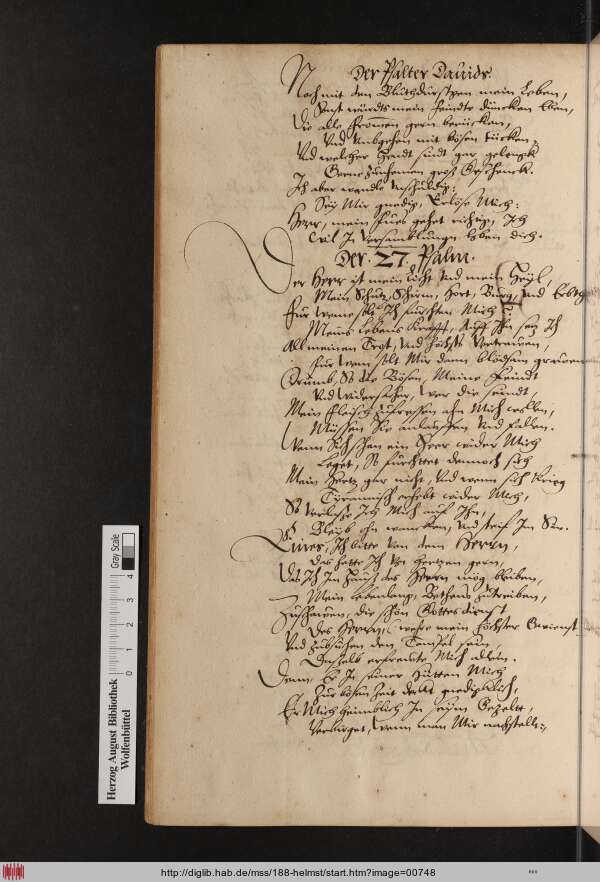 Der Psalter Dauids.
Noch mit den Bluthdürstgen mein Leben,
Sonst würdts mein Feindte düncken Eben,
Die alle Frommen gern berücken,
Vnd Vmbgehen mit bösen tücken,
Vnd welcher Handt sindt gar gelengk
Gerne Zunhemen groß Geschenck.
Ich aber wandle Vnschuldig:
Sey Mir gnedig, Erlöse Mich:
Herr, mein Fues gehet richtig, Ich
Will In Versamblunge loben dich.
Der 27. Psalm.
Der Herr ist mein Licht Vnd mein Heyl,
Mein Schutz, Schirm, Hort, Burg, Vnd
Für weme solt Ich fürchten Mich?
Meins Lebens Krafft, Auff Ihn setz Ich
All meinen Trost, Vnd höchst Vertrauen,
Für wem solt Mir dann grauen
Drumb, So die Bösen, Meine Feindt
Vnd Widersacher, wer die seindt,
Mein Fleisch zufressen ahn Mich wollen,
Müssen Sie anlauffen Vnd fallen.
Wenn Sich schon ein Heer wider Mich
Leget, So fürchtet dennoch sich
Mein Hertz gar nicht, Vnd wenn sich Krieg
Tyrannisch erhebt wider Mich,
So verlasse Ich Mich auf Ihn,
Bleyb ohn wancken, Vnd steif Im Sin.
Eines, Ich bitte Von dem Herrn,
Das hette Ich Von Hertzen gern,
Das Ich Im Hauß des Herrn mög bleiben,
Mein Lebenlang,
Zuschawen, die schön Gottesdienst
Des Herrn, were mein höchster Gewienst
Vnd Zubsuchen den Tempel sein,
Deshalb erfreute Mich allein.
Denn Er In seiner Hütten Mich
Zur bösen Zeit deckt gnediglich,
Er Mich heimblich In seym Gezeltt,
Verbirget, Wenn man Mir nachstellt,
Gray Scale
0 1 2 3 4
Herzog August Bibliothek
Wolfenbüttel
http://diglib.hab.de/mss/188-helmst/start.htm?image=00748